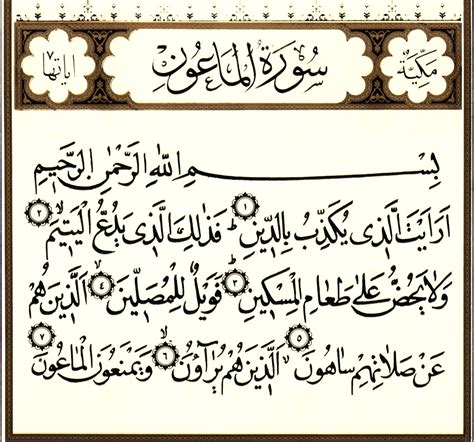 مَكِّيَّةٌ سُورَةُ الْمَاعُونِ آيَاتُهَا ٧
بِسْمِ اللهِ الرَّحْمٰنِ الرَّحِيمِ
اَرَاَيْتَ الَّذِي يُكَذِّبُ بِالدِّينِ ١ فَذٰلِكَ الَّذِي يَدُعُّ الْيَتِيمَ ٢
وَلَا يَحُضُّ عَلٰى طَعَامِ الْمِسْكِينِ ٣ فَوَيْلٌ لِلْمُصَلِّينَ ٤ اَلَّذِينَ هُمْ
عَنْ صَلَاتِهِمْ سَاهُونَ ٥ اَلَّذِينَ هُمْ يُرَآؤُنَ ٦ وَيَمْنَعُونَ الْمَاعُونَ ٧